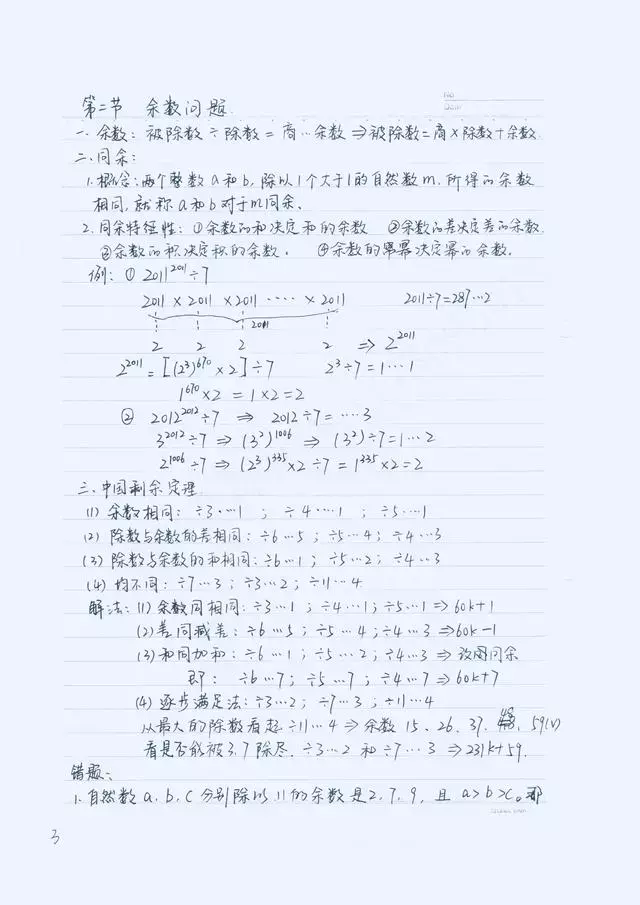 No
Date
第二节 余数问题
一、余数：被除数÷除数=商…余数⇒被除数=商×除数+余数
二、同余：
1.概念：两个整数a和b，除以1个大于1的自然数m，所得的余数
相同，就称a和b对于m同余、
2.同余特征性：①余数的和决定和的余数 ②余数的差决定差的余数
③余数的积决定积的余数。 ④余数的幂决定幂的余数。
例：① 2011²⁰¹¹÷7
2011 × 2011 × 2011 ···· × 2011 2011÷7=287…2
2011
2 2 2 2 ⇒ 2²⁰¹¹
2²⁰¹¹ = [(2³)⁶⁷⁰×2]÷7 2³÷7=1…1
1⁶⁷⁰×2 = 1×2=2
② 2012²⁰¹²÷7 ⇒ 2012÷7= ····3
3²⁰¹²÷7 ⇒ (3²)¹⁰⁰⁶ ⇒ (3²)÷7=1…2
2¹⁰⁰⁶÷7 ⇒ (2³)³³⁵×2÷7 = 1³³⁵×2=2
三、中国剩余定理
(1) 余数相同：÷3…1 ； ÷4…1 ； ÷5…1
(2) 除数与余数的差相同：÷6…5；÷5…4；÷4…3
(3) 除数与余数的和相同：÷6…1；÷5…2；÷4…3
(4) 均不同：÷7…3；÷3…2；÷11…4
解法：(1) 余数同相同：÷3…1；÷4…1；÷5…1⇒60k+1
(2) 差同减差：÷6…5；÷5…4；÷4…3⇒60k-1
(3) 和同加和：÷6…1；÷5…2；÷4…3⇒ 同余
即：÷6…7；÷5…7；÷4…7⇒60k+7
(4) 逐步满足法：÷3…2；÷7…3；÷11…4
从最大的除数看起÷11…4⇒余数 15、26、37、48、59(√)
看是否能被3.7除尽、÷3…2 和÷7…3⇒231k+59、
错题：
1.自然数a、b、c分别除以11的余数是2、7、9，且a>b>c。那
3